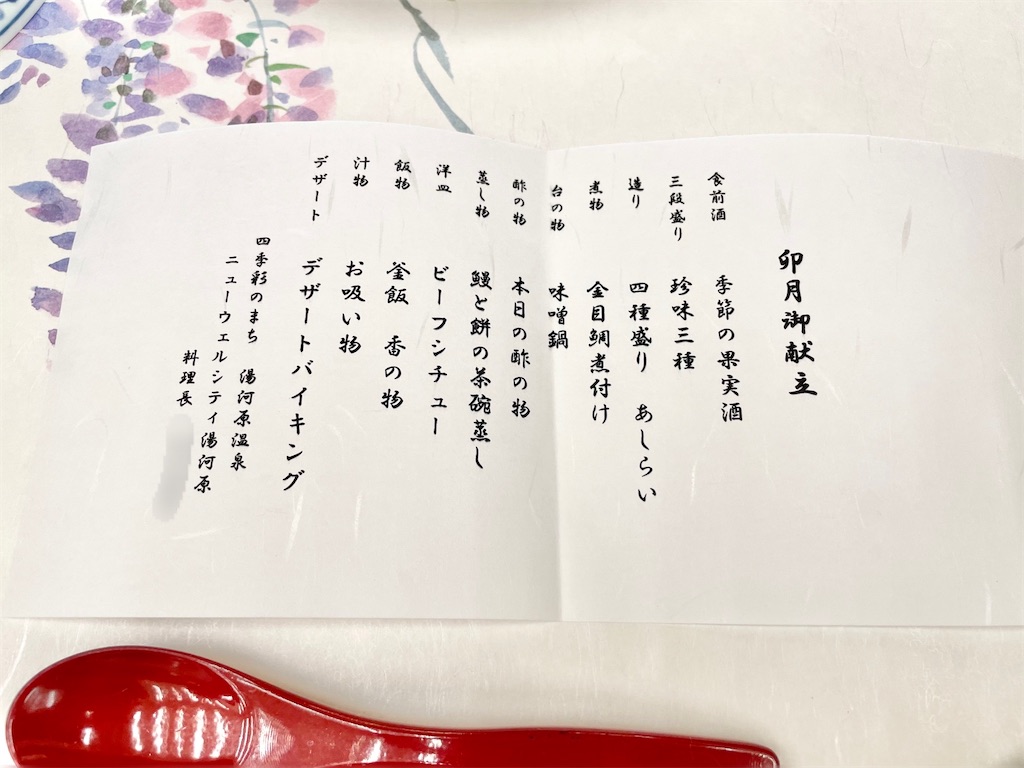 卯月御献立
食前酒 季節の果実酒
三段盛り 珍味三種
造り 四種盛り あしらい
煮物 金目鯛煮付け
台の物 味噌鍋
酢の物 本日の酢の物
蒸し物 鰻と餅の茶碗蒸し
洋皿 ビーフシチュー
飯物 釜飯 香の物
汁物 お吸い物
デザート デザートバイキング
四季彩のまち 湯河原温泉
ニューウェルシティ湯河原
料理長